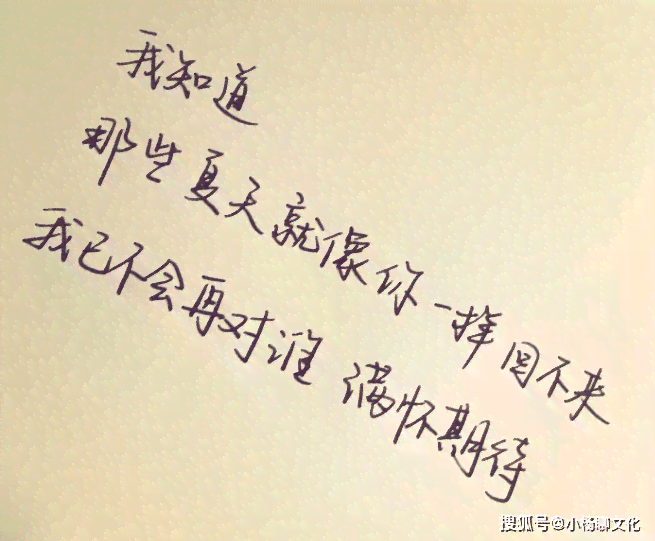 我知道
那些夏天就像你一样回不来
我已不会再对谁 满怀期待
搜狐号@小杨聊文化